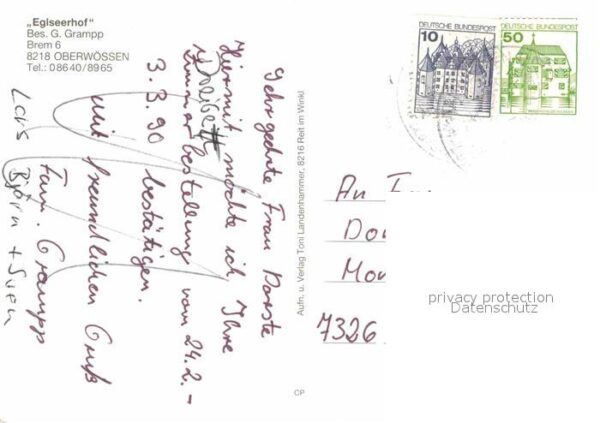 „Eglseerhof"
Bes. G. Grampp
Brem 6
8218 OBERWÖSSEN
Tel.: 08640/8965
DEUTSCHE BUNDESPOST
10
DEUTSCHE BUNDESPOST
50
Sehr geehrte Frau Dorste
Hiermit möchte ich Ihre
Zimmerbestellung vom 24.2.–
3.3.90 bestätigen.
Mit freundlichen Gruß
Fam. Grampp
Lars
Björn + Sven
Aufn. u. Verlag Toni Landenhammer, 8216 Reit im Winkl
An
7326
CP
privacy protection
Datenschutz